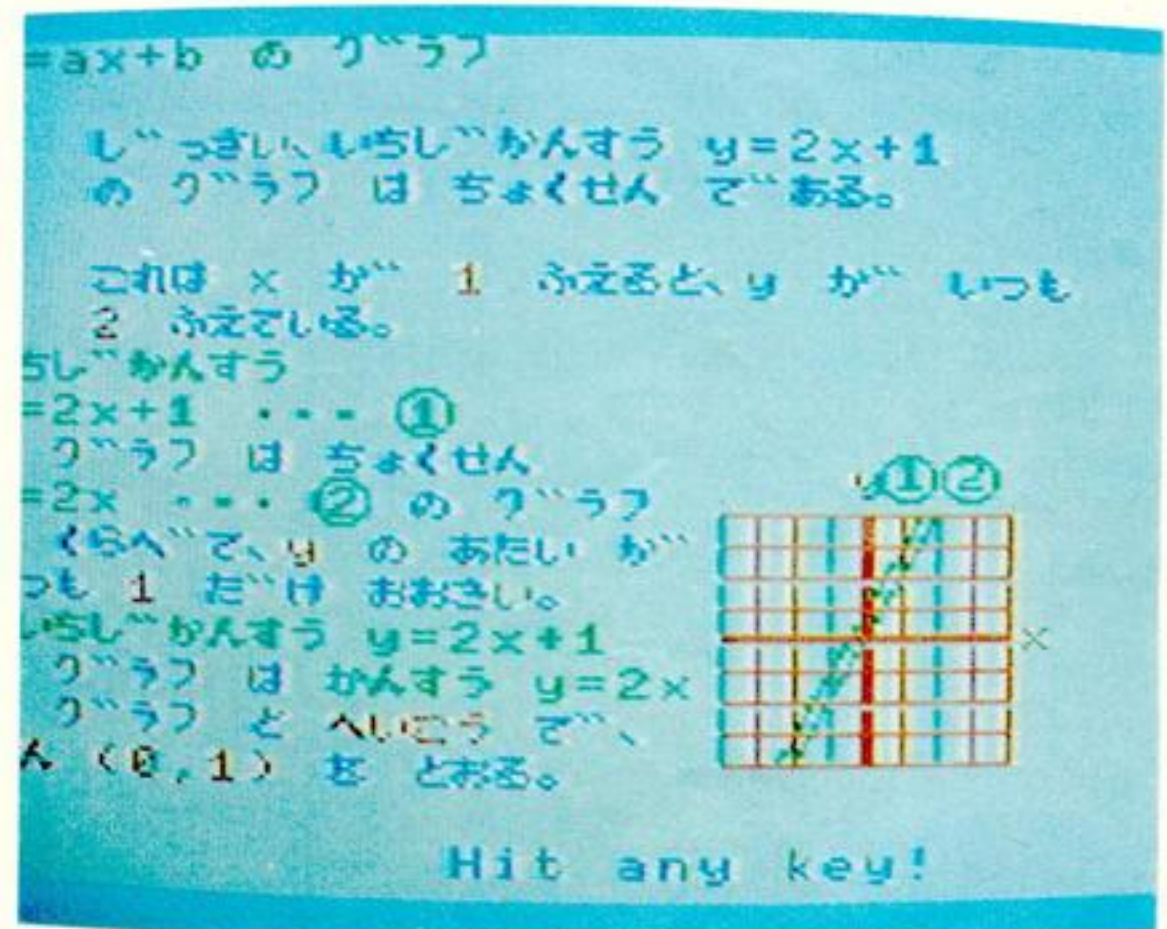 =ax+b の グラフ
じっさい、いちじかんすう y=2x+1
の グラフ は ちょくせん で ある。
これは x が 1 ふえると、y が いつも
2 ふえている。
ちじかんすう
=2x+1 ・・・ ①
グラフ は ちょくせん
=2x ・・・ ② の グラフ
くらべて、y の あたい が
つも 1 だけ おおきい。
いちじかんすう y=2x+1
グラフ は かんすう y=2x
グラフ と へいこう で、
ん (0,1) を とおる。
y ① ②
x
Hit any key!